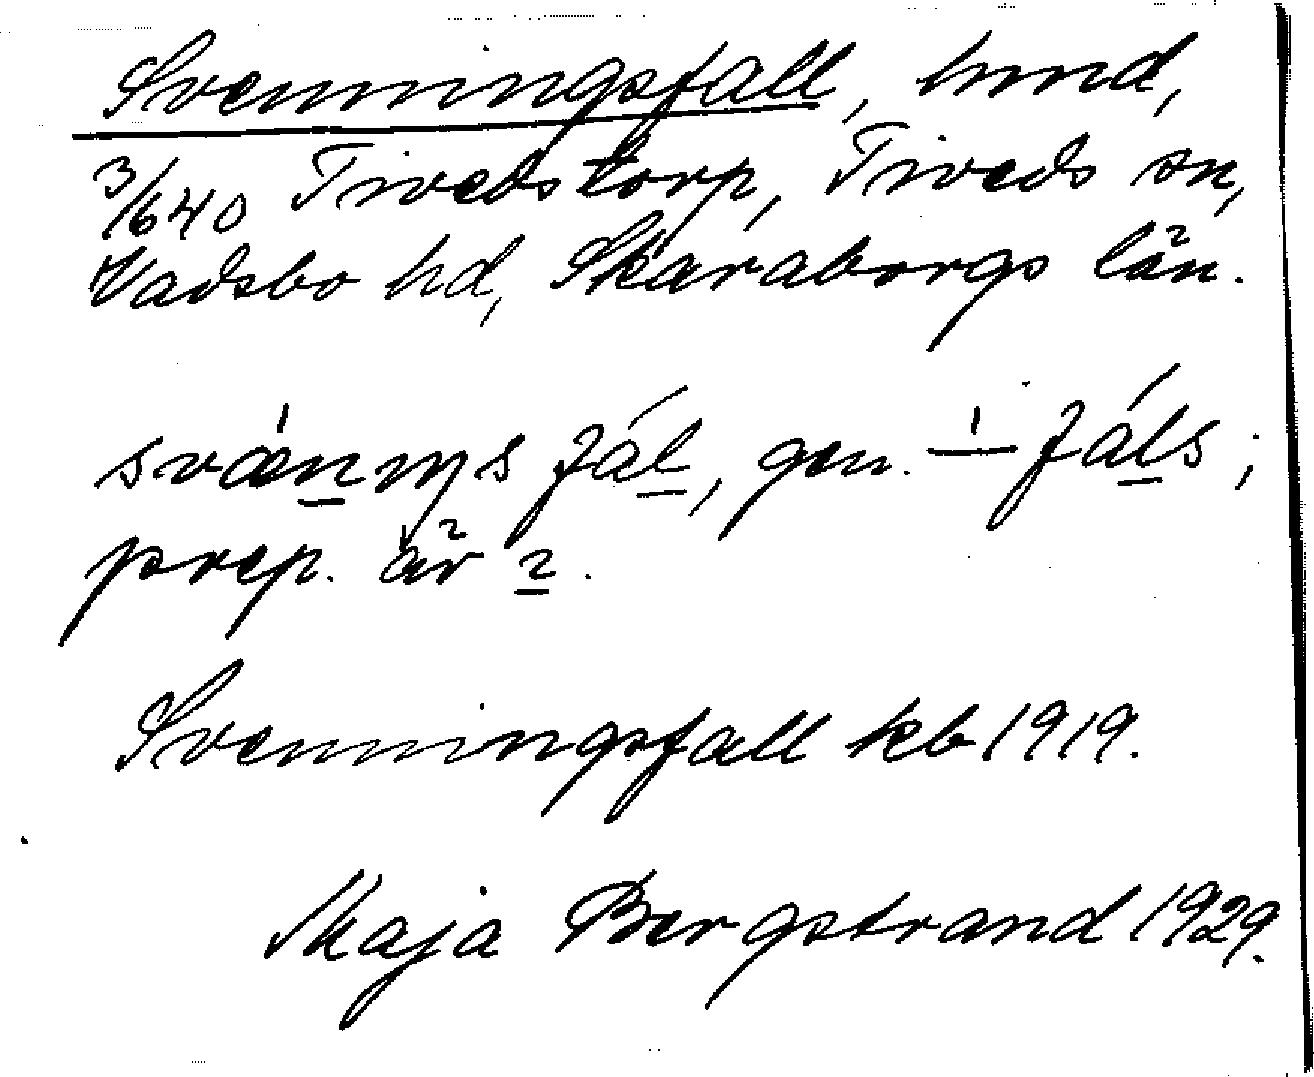 Svenningsfall, hmd,
3/640 Tivedstorp, Tiveds sn,
Vadsbo hd, Skaraborgs län.
gen.
prep. är
Svenningsfall kb 1919.
Maja Bergstrand 1929.